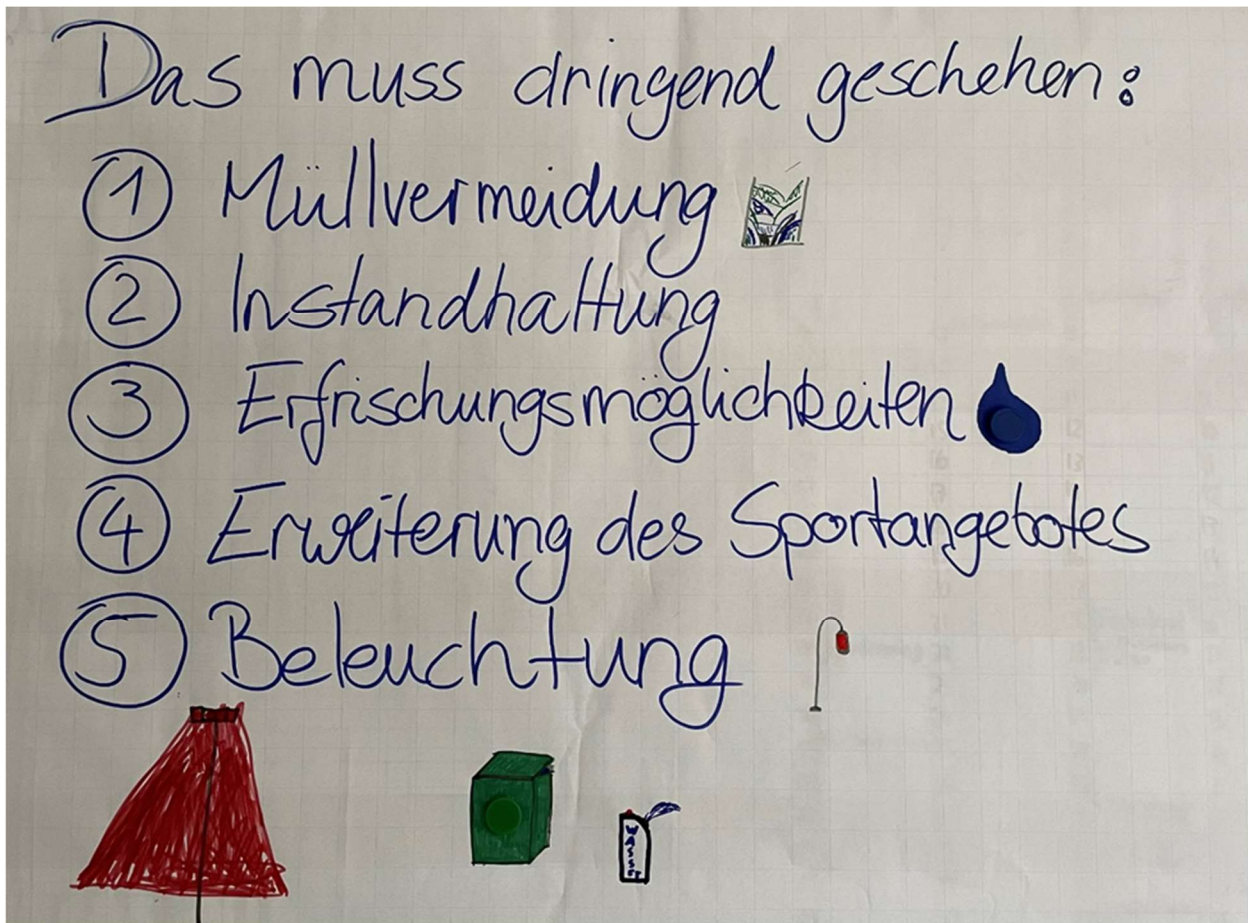 Das muss dringend geschehen:
1 Müllvermeidung
2 Instandhaltung
3 Erfrischungsmöglichkeiten
4 Erweiterung des Sportangebotes
5 Beleuchtung
WASSER